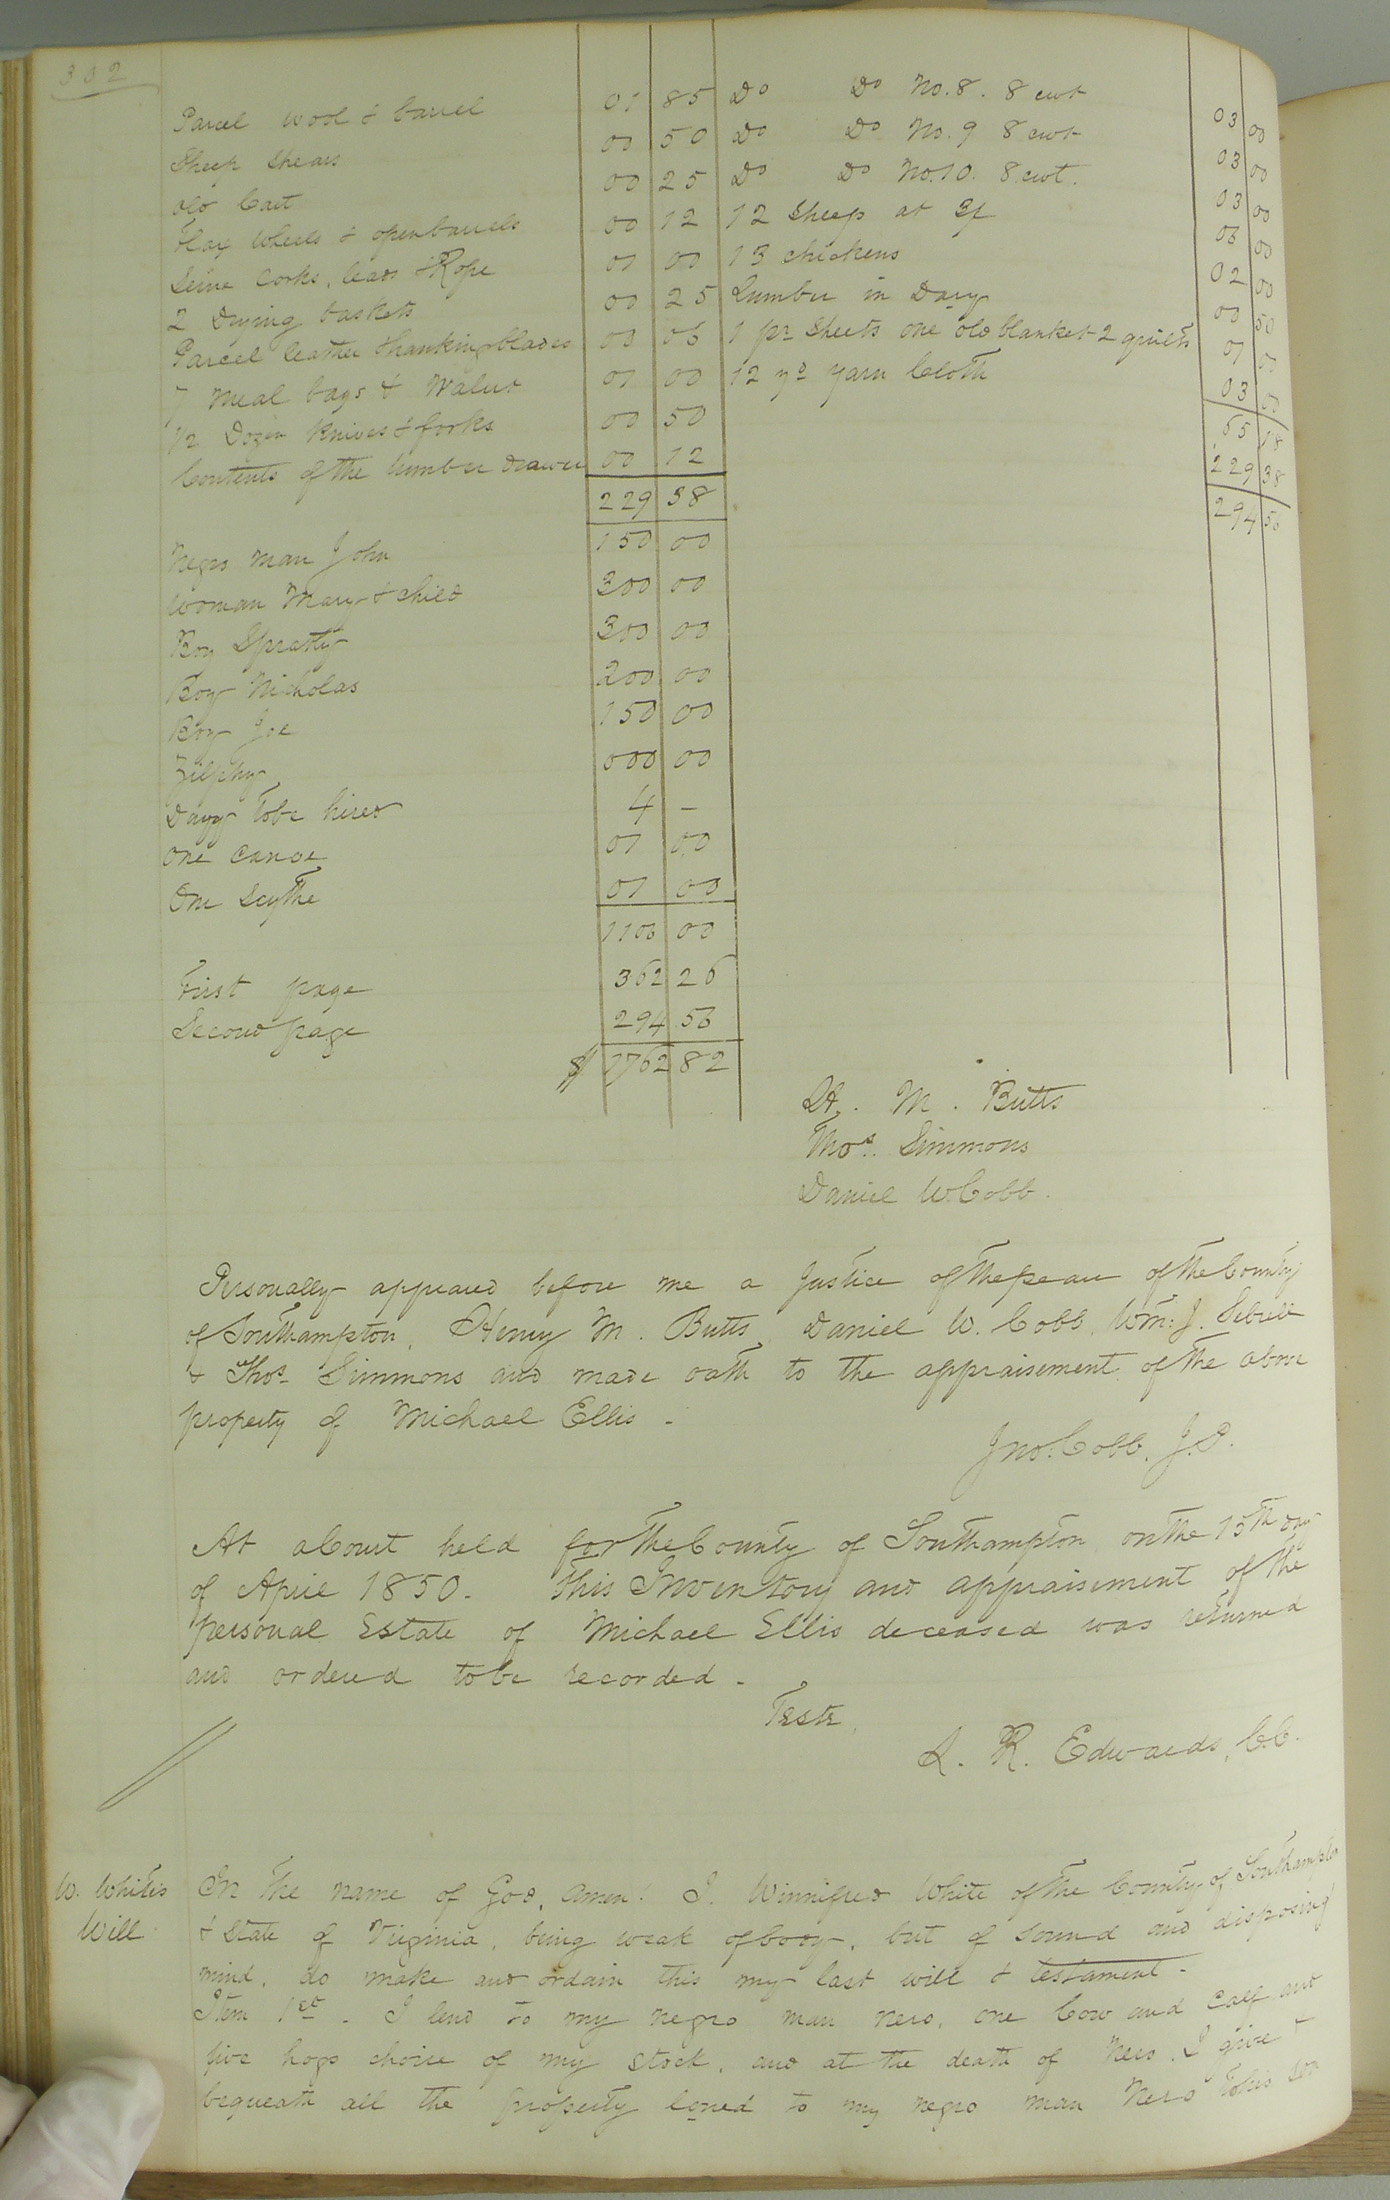 302
Parcel wool & barrel 01 85
Sheep Shears 00 50
Old Cart 00 25
Flax Wheels & open barrels 00 12
Seine Corks, leads & Rope 01 00
2 Drying baskets 00 25
Parcel leather & blades 00 06
7 Meal bags & 01 00
1/2 Dozen Knives & forks 00 50
Contents of the lumber drawer 00 12
229 38
Negro man John 150 00
Woman Mary & child 300 00
Boy Spratly 300 00
Boy Nicholas 200 00
Boy Joe 150 00
Zilphy 000 00
Davy to be hired 4 –
One Canoe 01 00
One Scythe 01 00
1106 00
First page 362 26
Second page 294 56
$ 1762 82
Do Do No. 8. 8 cwt 03 00
Do Do No. 9 8 cwt 03 00
Do Do No. 10. 8 cwt. 03 00
12 Sheep at 3/ 06 00
13 chickens 02 00
Lumber in Dary 00 50
1 pr Sheets one old blanket 2 quilts 01 00
12 yd yarn Cloth 03 00
65 18
229 38
294 56
H. M. Butts
Thos. Simmons
Daniel W. Cobb.
Personally appeared before me a Justice of the peace of the County
of Southampton, Henry M. Butts, Daniel W. Cobb, Wm. J. Sebrell
& Thos. Simmons and made oath to the appraisement of the above
property of Michael Ellis -
Jno. Cobb, J.P.
At a Court held for the County of Southampton on the 15th day
of April 1850. This Inventory and appraisement of the
personal Estate of Michael Ellis deceased was returned
and ordered to be recorded -
Teste,
L. R. Edwards, C.C.
W. White's
Will
In the name of God, amen! I. Winnifred White of the County of Southampton
& State of Virginia, being weak of body, but of sound and disposing
mind, do make and ordain this my last will & testament -
Item 1st - I lend to my negro man Nero, one Cow and calf and
five hogs choice of my stock, and at the death of Nero, I give &
bequeath all the property loned to my negro man Nero to his son